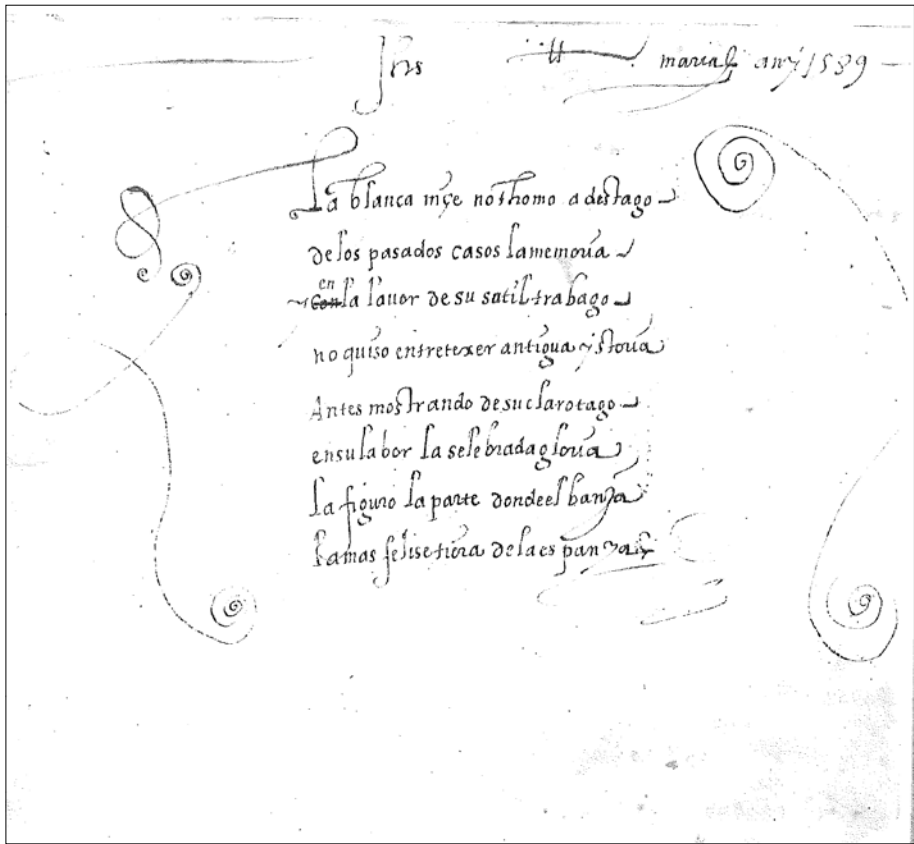 Jhs maria any 1589
La blanca niçe no thomo a destago
de los pasados casos la memoria
en
Con la lauor de su sutil trabago
no quiso entretexer antigua ystoria
Antes mostrando de su claro tago
en su labor la selebrada gloria
la figuro la parte donde el banya
la mas felise tierra de la espanya